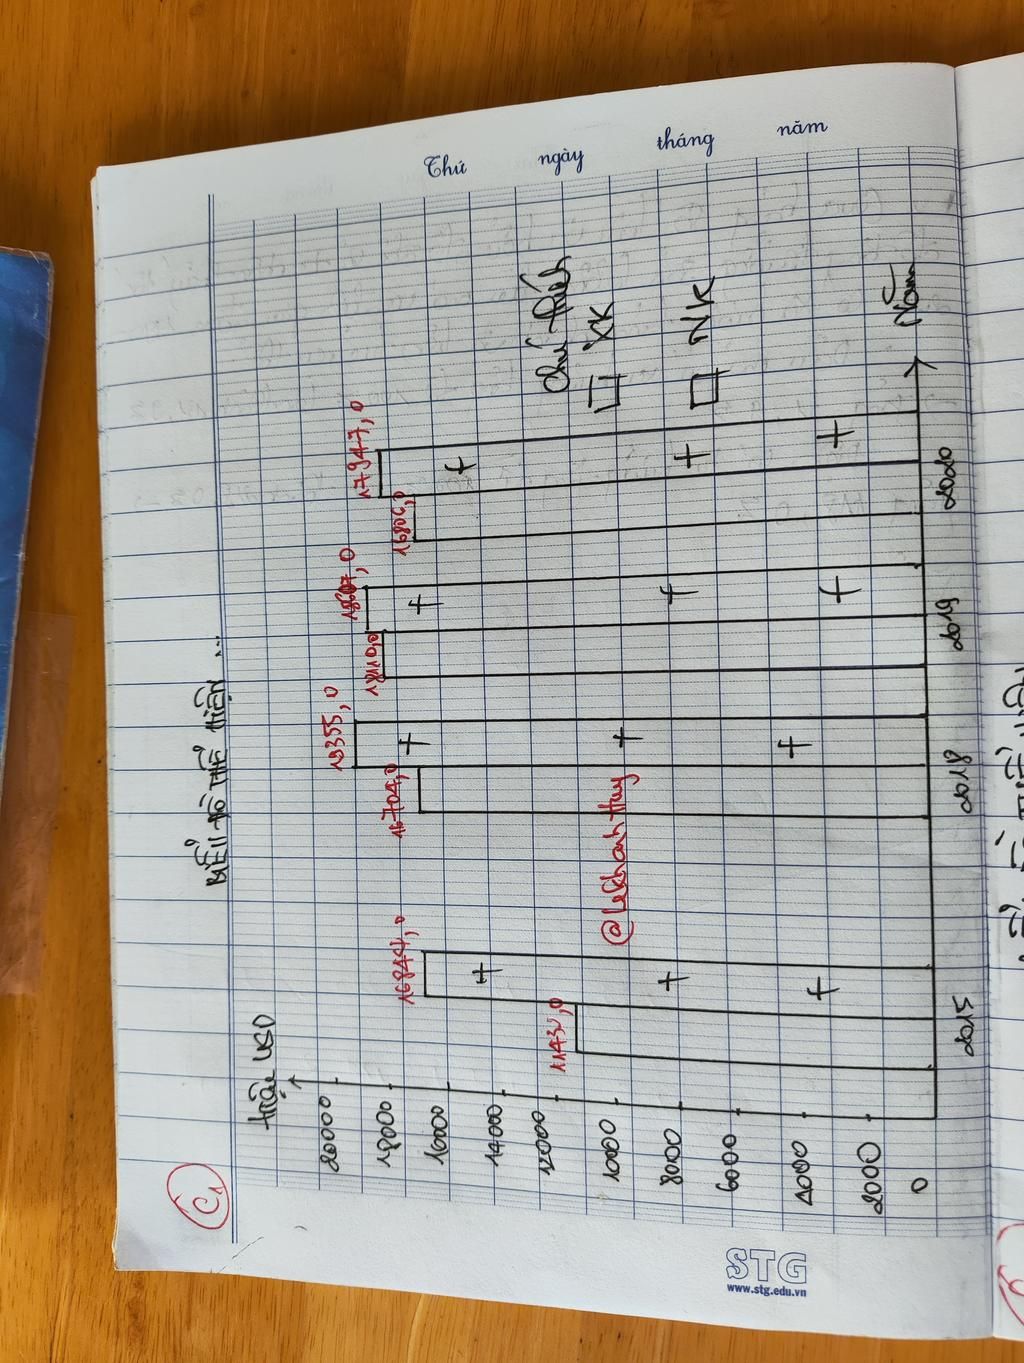 Thứ ngày tháng năm
C1
BIỂU ĐỒ THỂ HIỆN ...
triệu USD
20000
18000
16000
14000
12000
1000
8000
6000
4000
2000
0
11432,0
16844,0
16704,0
19355,0
18110,0
18607,0
16806,0
17947,0
2015
2018
2019
2020
Năm
Chú thích
XK
NK
@lekhanhthuy
STG
www.stg.edu.vn